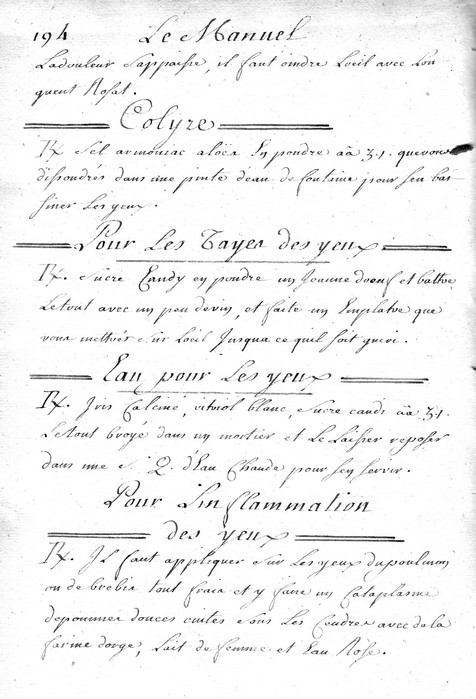 194 Le Manuel
Ladouleur Sappaise, il faut oindre Loeil avec Lon
guent Rosat.
Colyre
Rx. Sel armoniac aloës En poudre aâ 3.1. quevous
dissoudres dans une pinte deau de fontaine pour sen bas
siner Les yeux.
Pour Les Tayes des yeux
Rx. Sucre Candy en poudre un Jeaune doeuf et battre
Letout avec un peu devin, et faite un Emplatre que
vous mettrés Sur Loeil Jusqua ce quil soit gueri.
Eau pour Les yeux
Rx. Iris Calciné, vitriol blanc, Sucre candi aâ 3.1.
Letout broyé dans un mortier et Le Laisser reposer
dans une d'Eau Chaude pour sen servir.
Pour Linflammation
des yeux
Rx. Il faut appliquer Sur Les yeux dupoulmon
ou de brebis tout frais et y faire un Cataplasme
depommes douces cuites Sous Les Cendres avec dela
farine dorge, Lait de femme et Eau Rose.